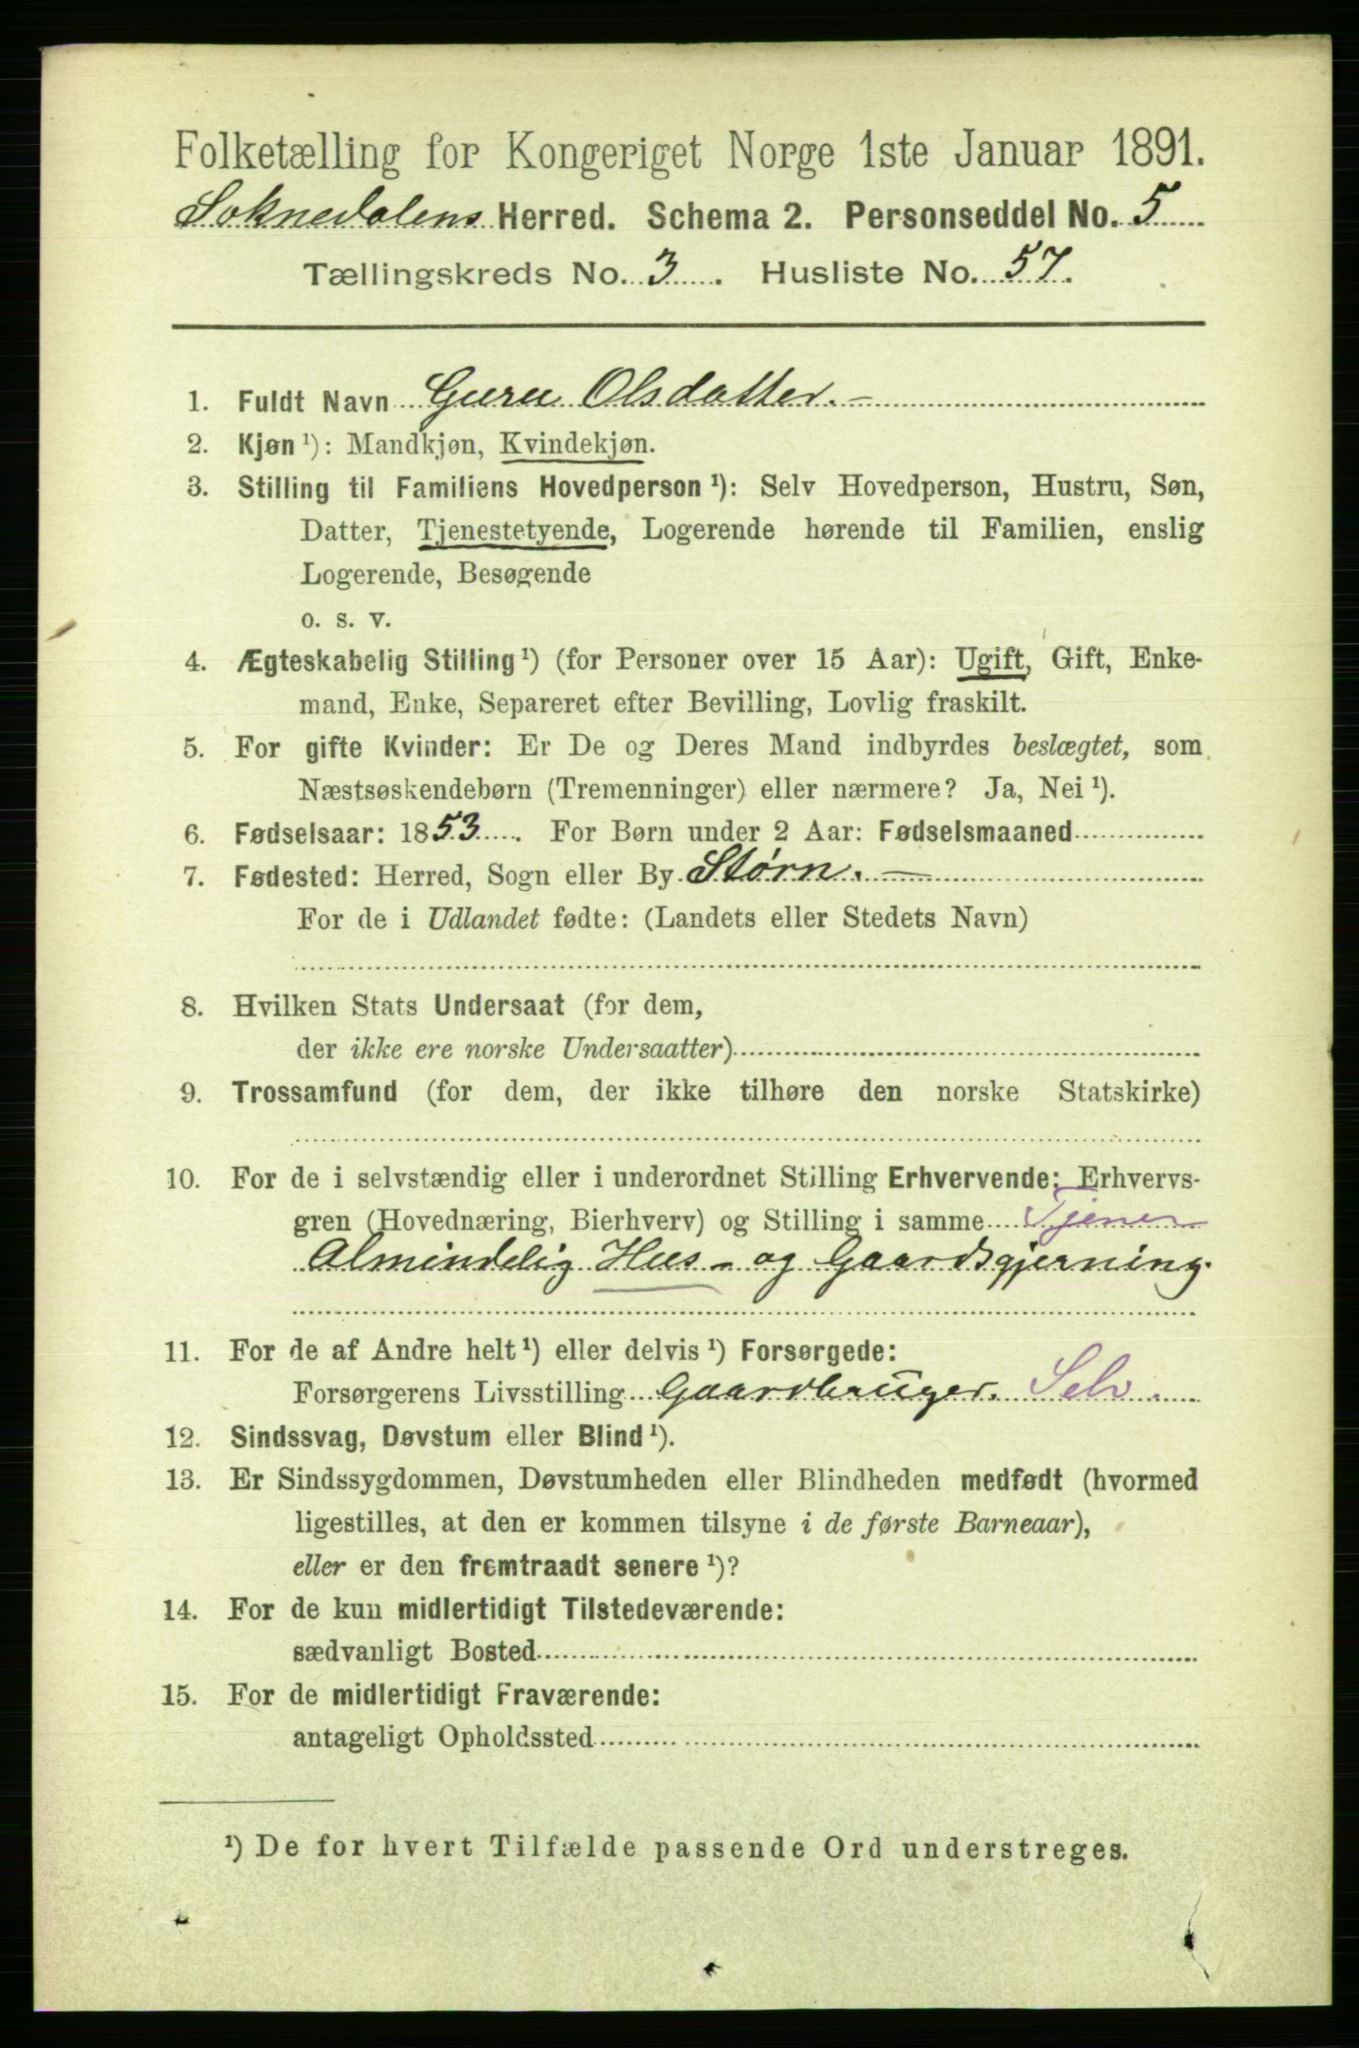 Folketælling for Kongeriget Norge 1ste Januar 1891.
Soknedalens Herred. Schema 2. Personseddel No. 5
Tællingskreds No. 3. Husliste No. 57.
1. Fuldt Navn Guru Olsdatter. —
2. Kjøn ¹): Mandkjøn, Kvindekjøn.
3. Stilling til Familiens Hovedperson ¹): Selv Hovedperson, Hustru, Søn,
Datter, Tjenestetyende, Logerende hørende til Familien, enslig
Logerende, Besøgende
o. s. v.
4. Ægteskabelig Stilling ¹) (for Personer over 15 Aar): Ugift, Gift, Enke-
mand, Enke, Separeret efter Bevilling, Lovlig fraskilt.
5. For gifte Kvinder: Er De og Deres Mand indbyrdes beslægtet, som
Næstsøskendebørn (Tremenninger) eller nærmere? Ja, Nei ¹).
6. Fødselsaar: 1853. For Børn under 2 Aar: Fødselsmaaned
7. Fødested: Herred, Sogn eller By Størn. —
For de i Udlandet fødte: (Landets eller Stedets Navn)
8. Hvilken Stats Undersaat (for dem,
der ikke ere norske Undersaatter)
9. Trossamfund (for dem, der ikke tilhøre den norske Statskirke)
10. For de i selvstændig eller i underordnet Stilling Erhvervende: Erhvervs-
gren (Hovednæring, Bierhverv) og Stilling i samme Tjener
Almindelig Hus- og Gaardsgjerning.
11. For de af Andre helt ¹) eller delvis ¹) Forsørgede:
Forsørgerens Livsstilling Gaardbruger. Selv.
12. Sindssvag, Døvstum eller Blind ¹).
13. Er Sindssygdommen, Døvstumheden eller Blindheden medfødt (hvormed
ligestilles, at den er kommen tilsyne i de første Barneaar),
eller er den fremtraadt senere ¹)?
14. For de kun midlertidigt Tilstedeværende:
sædvanligt Bosted
15. For de midlertidigt Fraværende:
antageligt Opholdssted
¹) De for hvert Tilfælde passende Ord understreges.